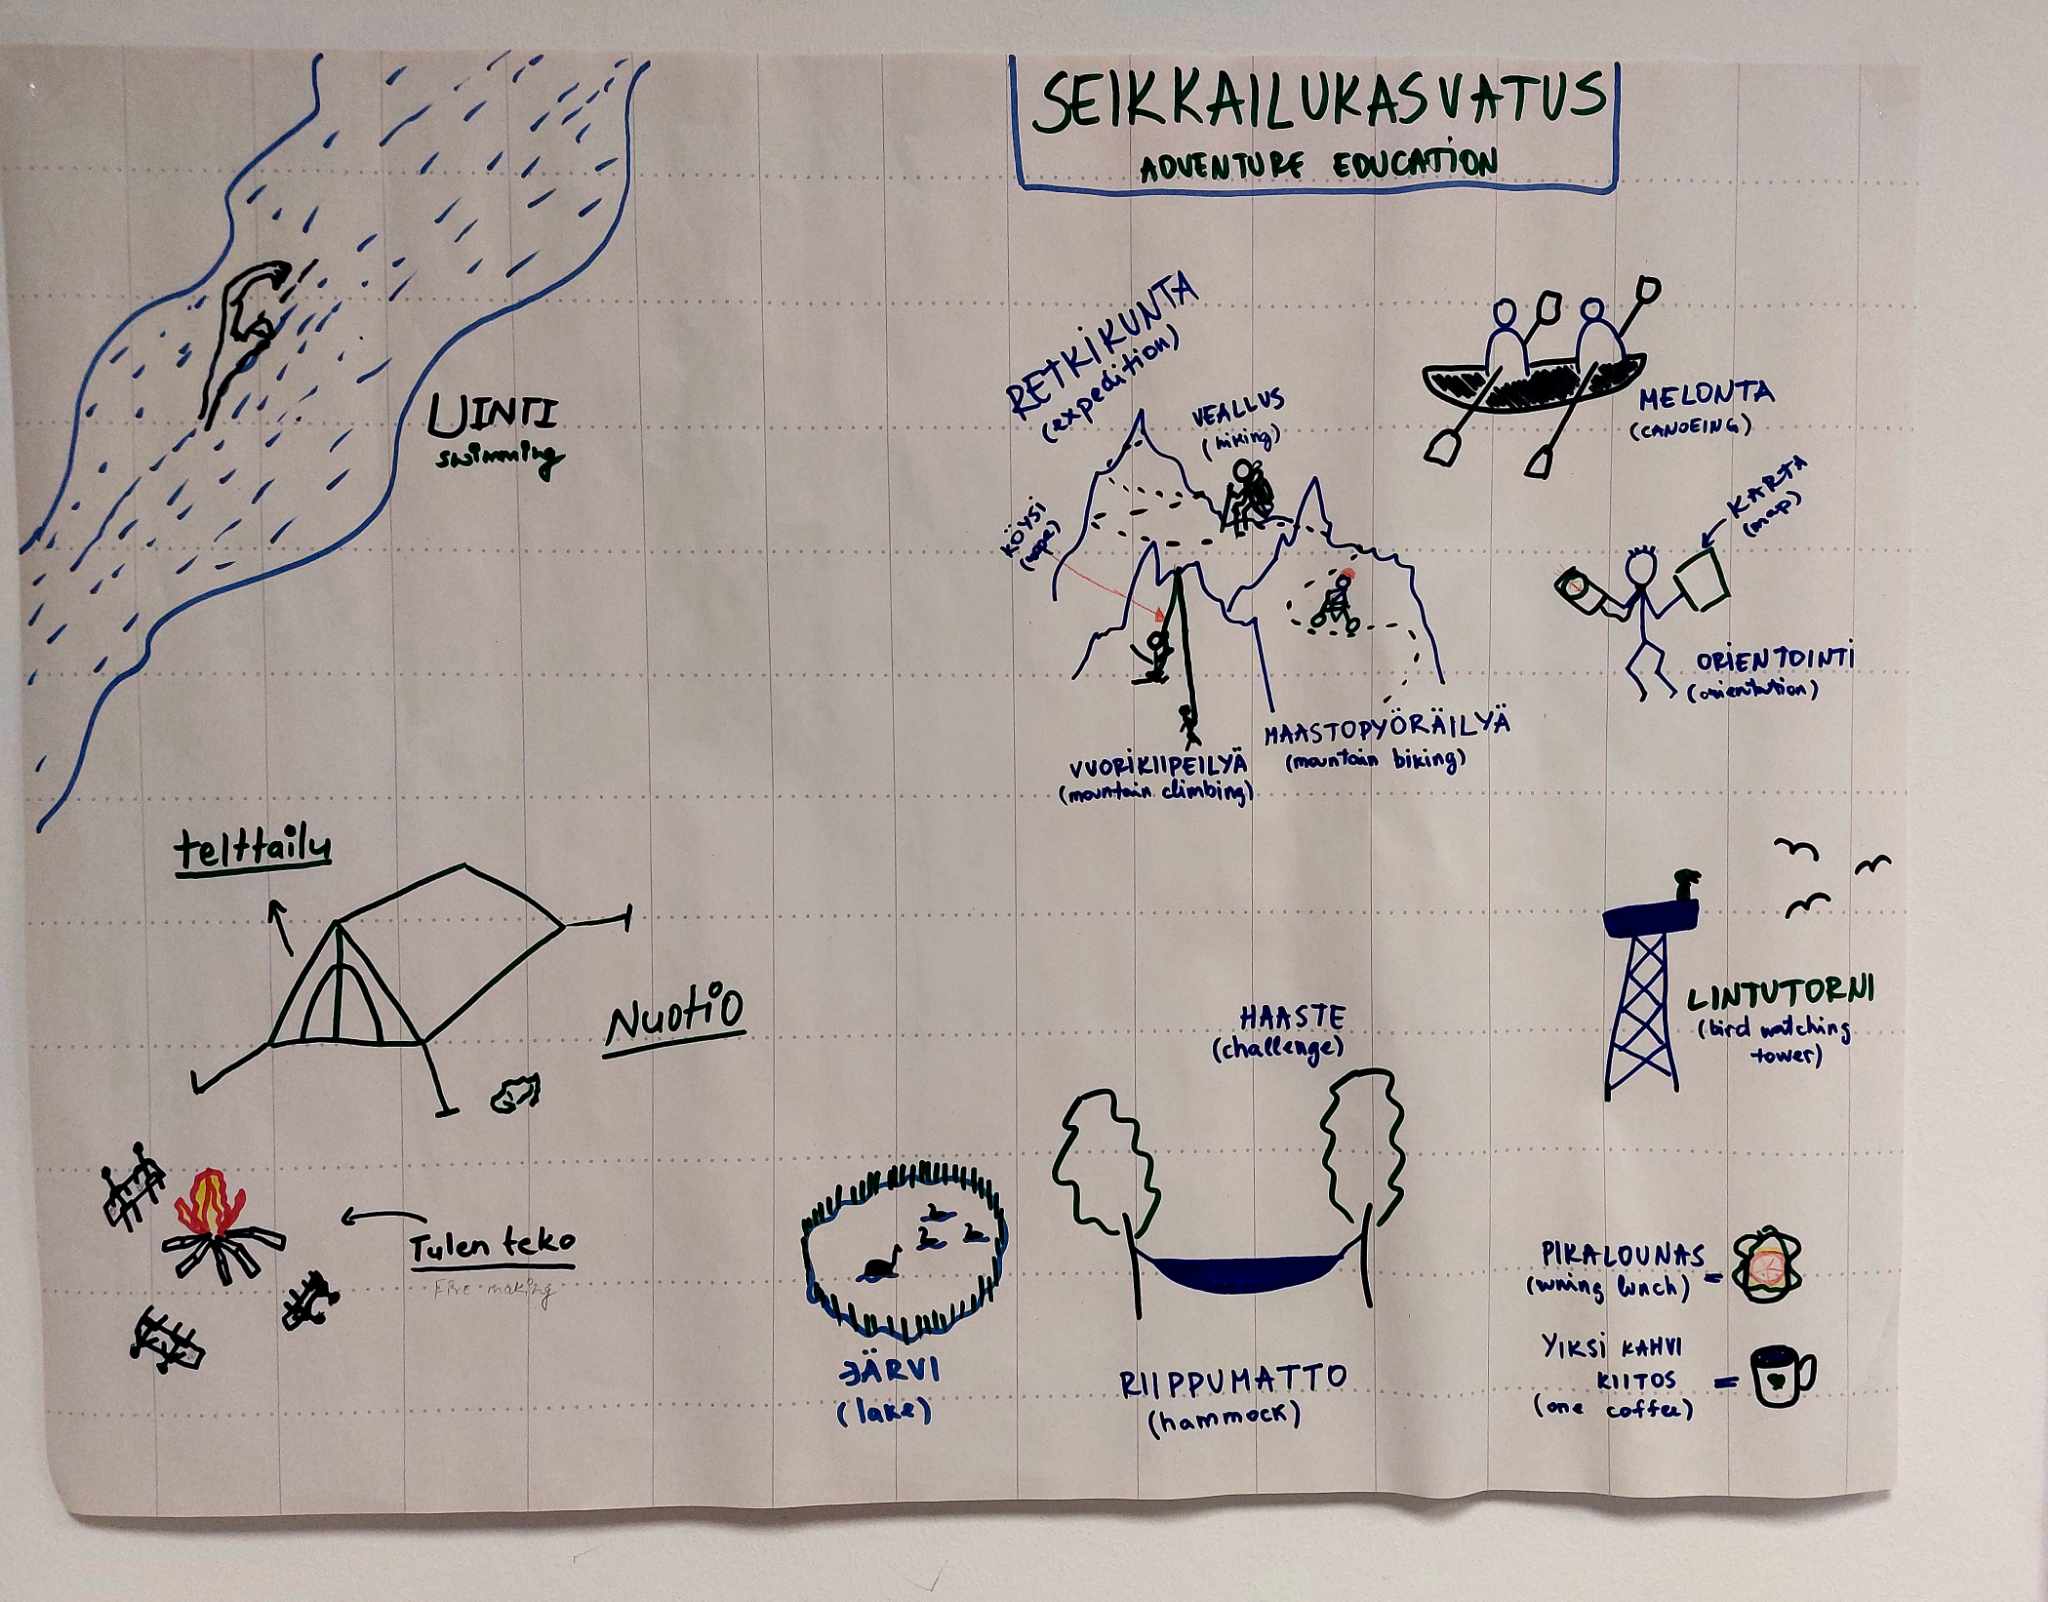 SEIKKAILUKASVATUS
ADVENTURE EDUCATION
UINTI
swimming
RETKIKUNTA
(expedition)
VEALLUS
(hiking)
KÖYSI
(rope)
VUORIKIIPEILYÄ
(mountain climbing)
MAASTOPYÖRÄILYÄ
(mountain biking)
MELONTA
(CANOEING)
KARTA
(map)
ORIENTOINTI
(orientation)
telttailu
Nuotio
Tulen teko
Fire making
JÄRVI
(lake)
HAASTE
(challenge)
RIIPPUMATTO
(hammock)
LINTUTORNI
(bird watching
tower)
PIKALOUNAS =
lunch)
YIKSI KAHVI
KIITOS =
(one coffee)